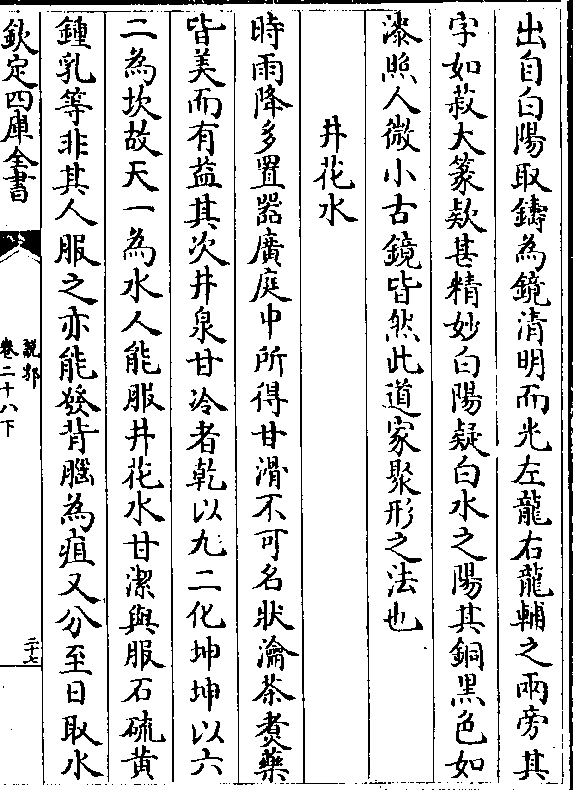 出自白陽取鑄為鏡清明而光左龍右龍輔之兩旁其
字如菽大篆欵甚精妙白陽疑白水之陽其銅黑色如
漆照人微小古鏡皆然此道家聚形之法也
井花水
時雨降多置器廣庭中所得甘滑不可名狀瀹茶煑藥
皆美而有益其次井泉甘冷者乾以九二化坤坤以六
二為坎故天一為水人能服井花水甘潔與服石硫黃
鍾乳等非其人服之亦能發背腦為疽又分至日取水
欽定四庫全書
說郛
卷二十八下
二十七